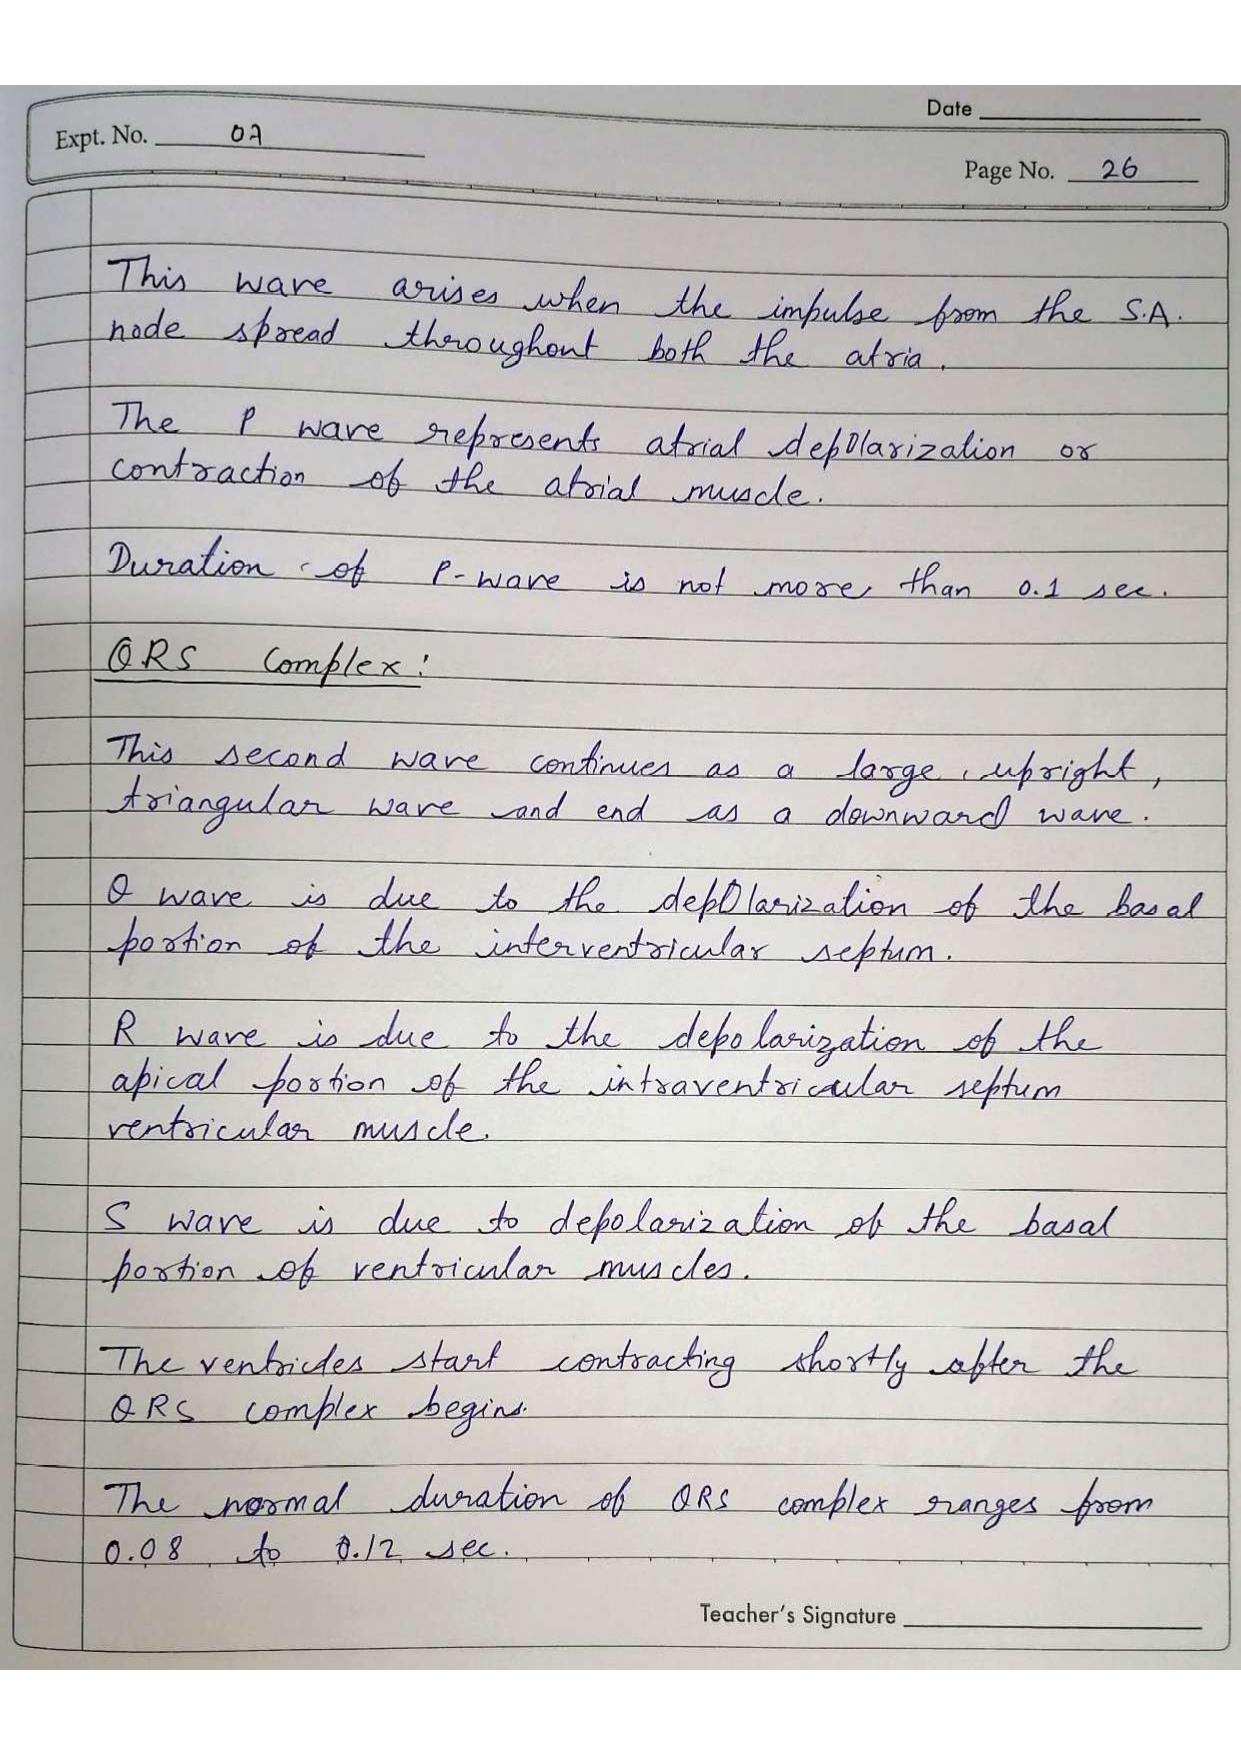 Date
Expt. No. 07
Page No. 26
This wave arises when the impulse from the S.A.
node spread throughout both the atria.
The P wave represents atrial depolarization or
contraction of the atrial muscle.
Duration of P-wave is not more than 0.1 sec.
QRS Complex:
This second wave continues as a large, upright,
triangular wave and end as a downward wave.
Q wave is due to the depolarization of the basal
portion of the interventricular septum.
R wave is due to the depolarization of the
apical portion of the intraventricular septum
ventricular muscle.
S wave is due to depolarization of the basal
portion of ventricular muscles.
The ventricles start contracting shortly after the
QRS complex begins.
The normal duration of QRS complex ranges from
0.08 to 0.12 sec.
Teacher's Signature